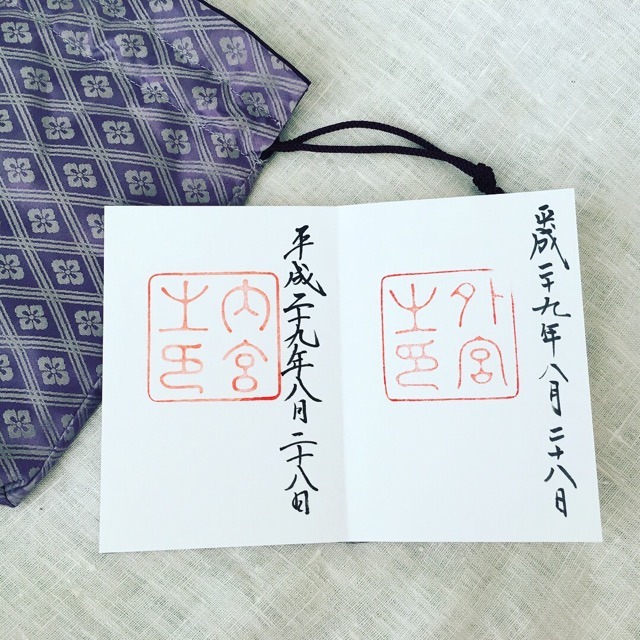 平成二十九年八月二十八日
外宮
之印
平成二十九年八月二十八日
内宮
之印